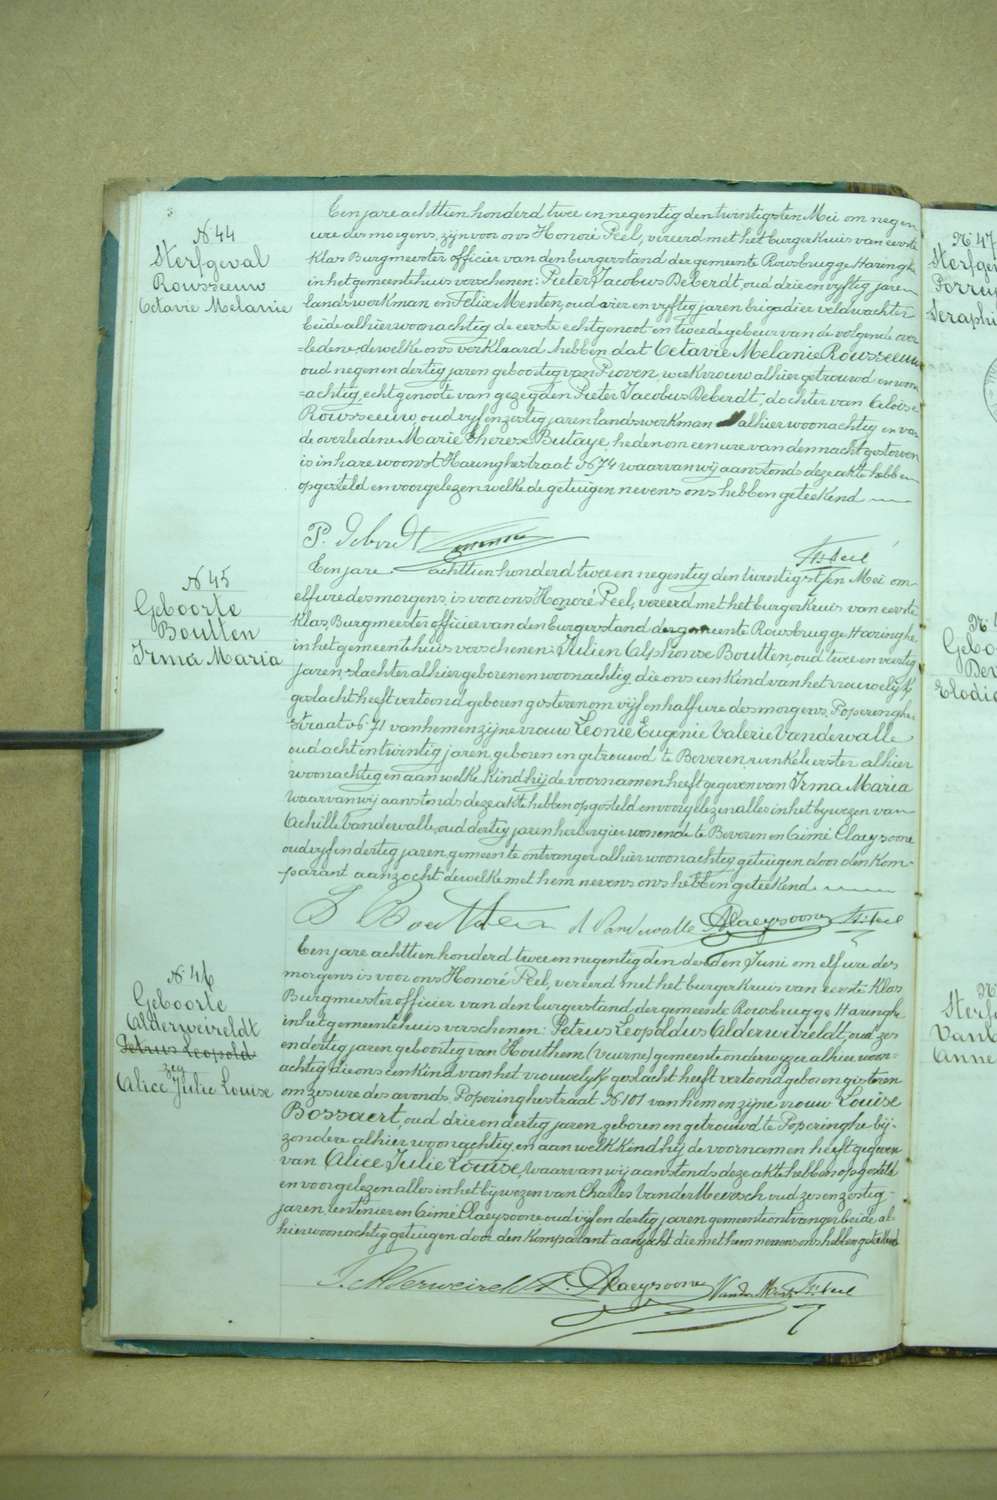 N. 44
Sterfgeval
Rousseeuw
Octavie Melanie
Een jare achttien honderd twee en negentig den twintigsten Mei om negen
ure des morgens, zijn voor ons Honoré Peel, vereerd met het burgerkruis van eerste
klas Burgmeester officier van den burgerstand der gemeente Rousbrugge Haringhe
in het gemeentehuis verschenen: Pieter Jacobus DeBerdt, oud drie en vyftig jaren
landswerkman en Felix Menten, oud vier en vyftig jaren brigadier veldwachter
beide alhier woonachtig de eerste echtgenoot en tweede gebuer van de volgende over
=ledene, dewelke ons verklaard hebben dat Octavie Melanie Rousseeuw
oud negen en dertig jaren geboortig van Proven, werkvrouw alhier getrouwd en woon
=achtig, echtgenoote van gezegden Pieter Jacobus DeBerdt, dochter van Eloïse
Rousseeuw, oud vyf en zestig jaren landswerkman alhier woonachtig en van
de overledene Marie Therese Butaye, heden om een ure van den nacht gestorven
is in hare woonst Haringhestraat N 74 waarvan wij aanstonds deze akte hebben
opgesteld en voorgelezen welke de getuigen nevens ons hebben geteekend
P. deberdt Menten H. Peel
N. 45
Geboorte
Boutten
Irma Maria
Een jare achttien honderd twee en negentig den twintigsten Mei om
elf ure des morgens, is voor ons Honoré Peel, vereerd met het burgerkruis van eerste
klas Burgmeester officier van den burgerstand der gemeente Rousbrugge Haringhe
in het gemeentehuis verschenen: Julien Alphonse Boutten, oud twee en veertig
jaren, slachter alhier geboren en woonachtig die ons een Kind van het vrouwelijk
geslacht heeft vertoond geboren gisteren om vijf en half ure des morgens, Poperinghe
straat N. 71 van hem en zijne vrouw Leonie Eugenie Valerie Vandewalle
oud acht en twintig jaren, geboren en getrouwd te Beveren, winkelierster alhier
woonachtig en aan welke Kind hij de voornamen heeft gegeven van Irma Maria
Waarvan wij aanstonds deze akte hebben opgesteld en voorgelezen alles in het bywezen van
Achille Vandewalle, oud dertig jaren herbergier wonende te Beveren en Aimé Claeysoone
oud vyf en dertig jaren, gemeente ontvanger alhier woonachtig getuigen door den Kom-
parant aanzocht dewelke met hem nevens ons hebben geteekend
Boutten A Vandewalle AClaeysoone H. Peel
N. 46
Geboorte
Alderweireldt
Petrus Leopold
zeg
Alice Julie Louise
Een jare achttien honderd twee en negentig den derden Juni om elf ure des
morgens is voor ons Honoré Peel, vereerd met het burgerkruis van eerste Klas
Burgmeester officier van den burgerstand der gemeente Rousbrugge Haringhe
in het gemeentehuis verschenen: Petrus Leopoldus Alderweireldt, oud zes
en dertig jaren geboortig van Houthem (veurne) gemeente onderwyzer alhier woon-
achtig die ons een Kind van het vrouwelyk geslacht heeft vertoond geboren gisteren
om zes ure des avonds, Poperinghestraat N. 101 van hem en zijne vrouw Louise
Bossaert, oud drie en dertig jaren geboren en getrouwd te Poperinghe bij-
zondere alhier woonachtig, en aan welk Kind hij de voornamen heeft gegeven
van Alice Julie Louise, waarvan wij aanstonds deze akte hebben opgesteld
en voorgelezen alles in het bijwezen van Charles Vander Meersch oud zes en zestig
jaren, rentenier en Aimé Claeysoone oud vijf en dertig jaren gemeente ontvanger beide al-
hier woonachtig getuigen door den Komparant aanzocht die met hem nevens ons hebben geteekend
Alderweireldt P. AClaeysoone H. Peel
N. 47
Sterfgev
Seraphi
Elodie
Anne